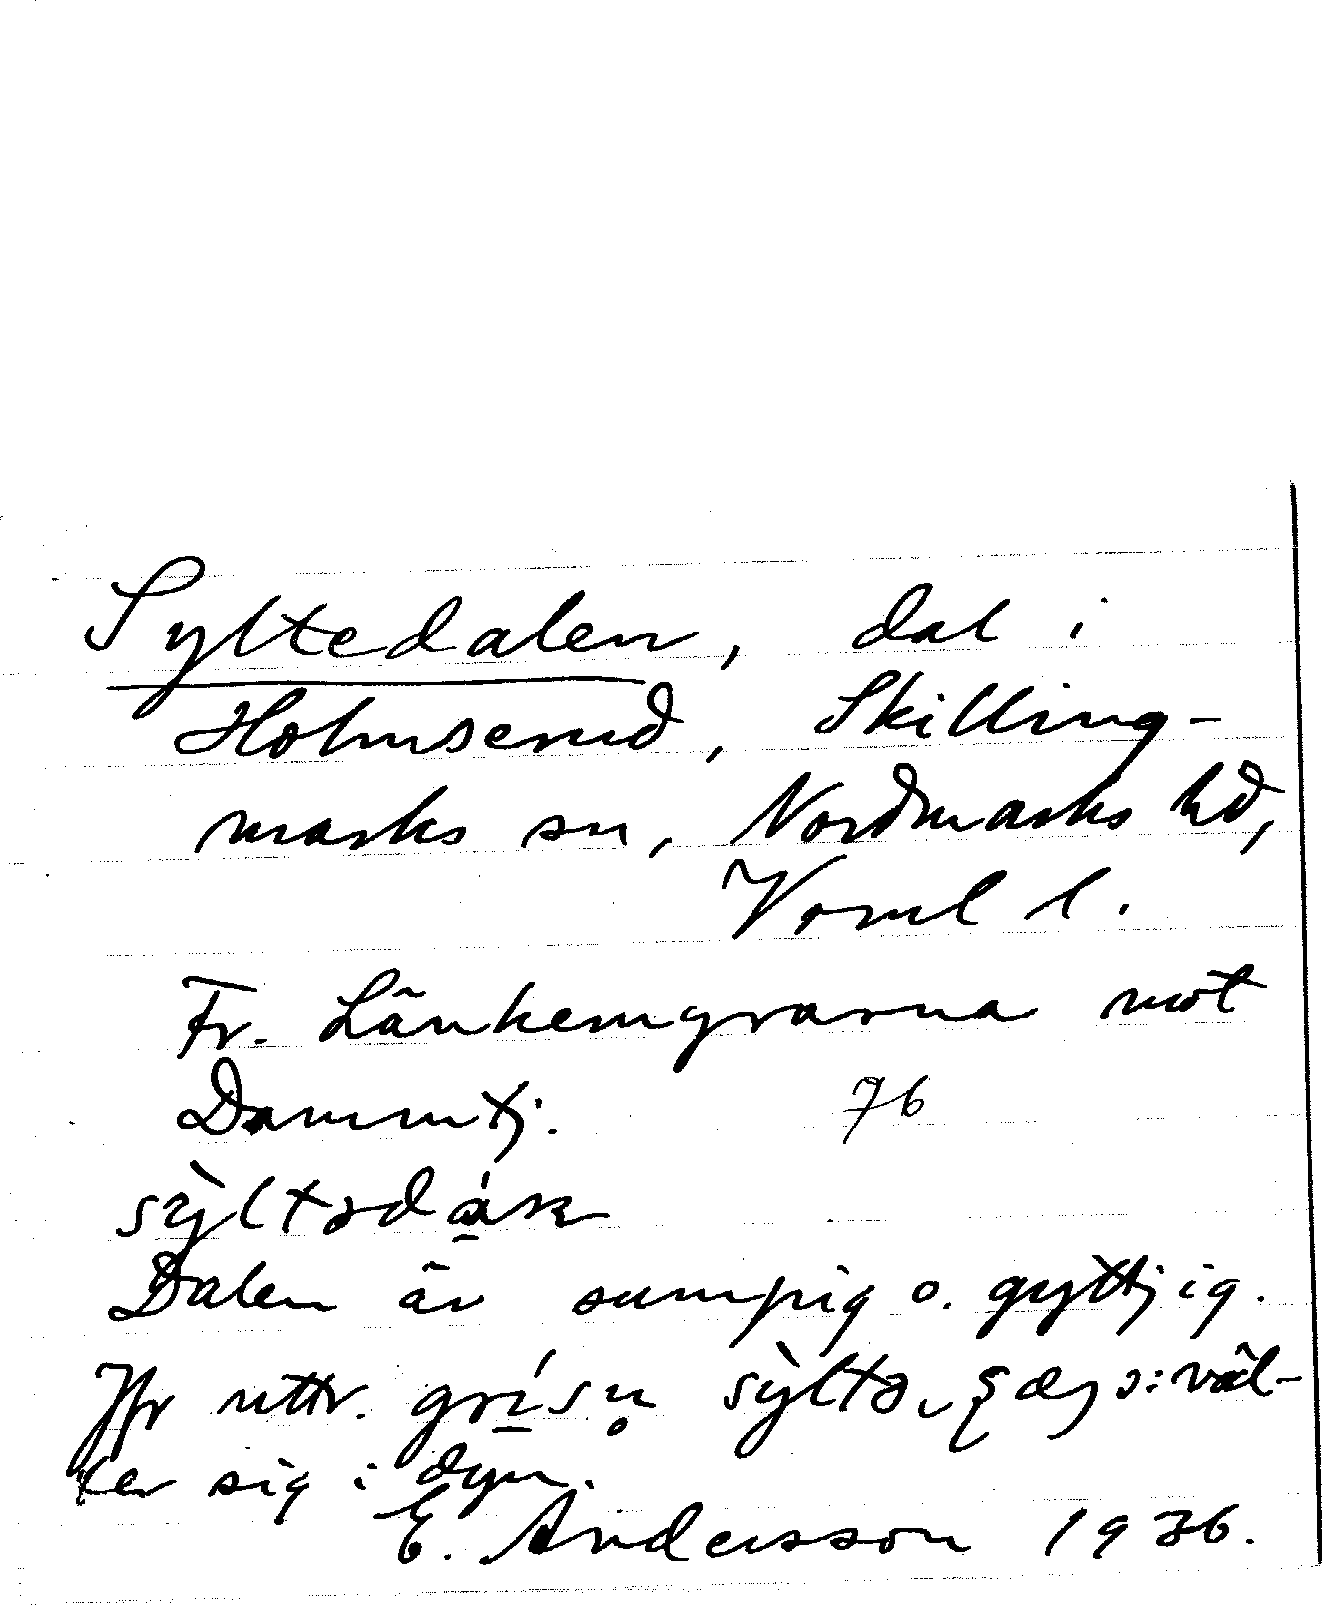 Syltedalen, dal i
Holmserud, Skilling-
marks sn, Nordmarks hd,
Värml l.
Fr. Länkemyrarna mot
Dammtj. 76
Dalen är sumpig o. gyttjig.
Jfr uttr. :väl-
ter sig i dyn.
E. Andersson 1936.